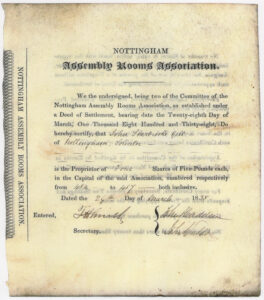 NOTTINGHAM
Assembly Rooms Association.
We the undersigned, being two of the Committee of the
Nottingham Assembly Rooms Association, as established under
a Deed of Settlement, bearing date the Twenty-eighth Day of
March, One Thousand Eight Hundred and Thirty-eight, Do
hereby certify, that John
of Nottingham
is the Proprietor of Four Shares of Five Pounds each,
in the Capital of the said Association, numbered respectively
from 414 to 417 both inclusive.
Dated the 28th Day of March 1838
Entered,
Secretary.
NOTTINGHAM ASSEMBLY ROOMS ASSOCIATION.